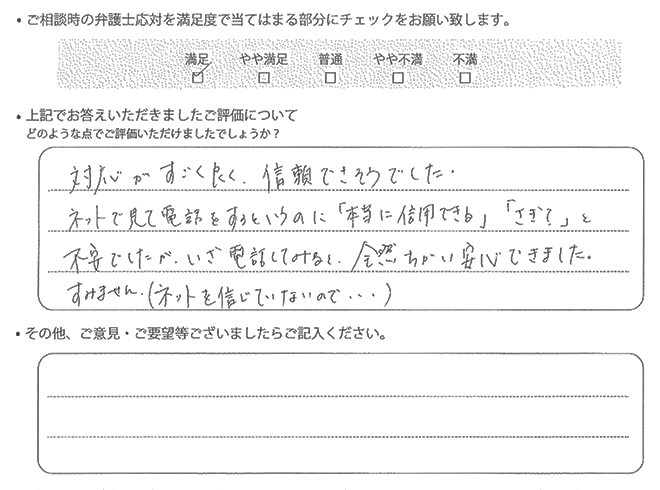 ・ご相談時の弁護士応対を満足度で当てはまる部分にチェックをお願い致します。
満足 やや満足 普通 やや不満 不満
☑ □ □ □ □
・上記でお答えいただきましたご評価について
どのような点でご評価いただけましたでしょうか？
対応がすごく良く、信頼できそうでした。
ネットで見て電話をするというのに「本当に信用できる」「さぎ？」と
不安でしたが、いざ電話してみると、全然ちがい安心できました。
すみません。(ネットを信じていないので・・・)
・その他、ご意見・ご要望等ございましたらご記入ください。